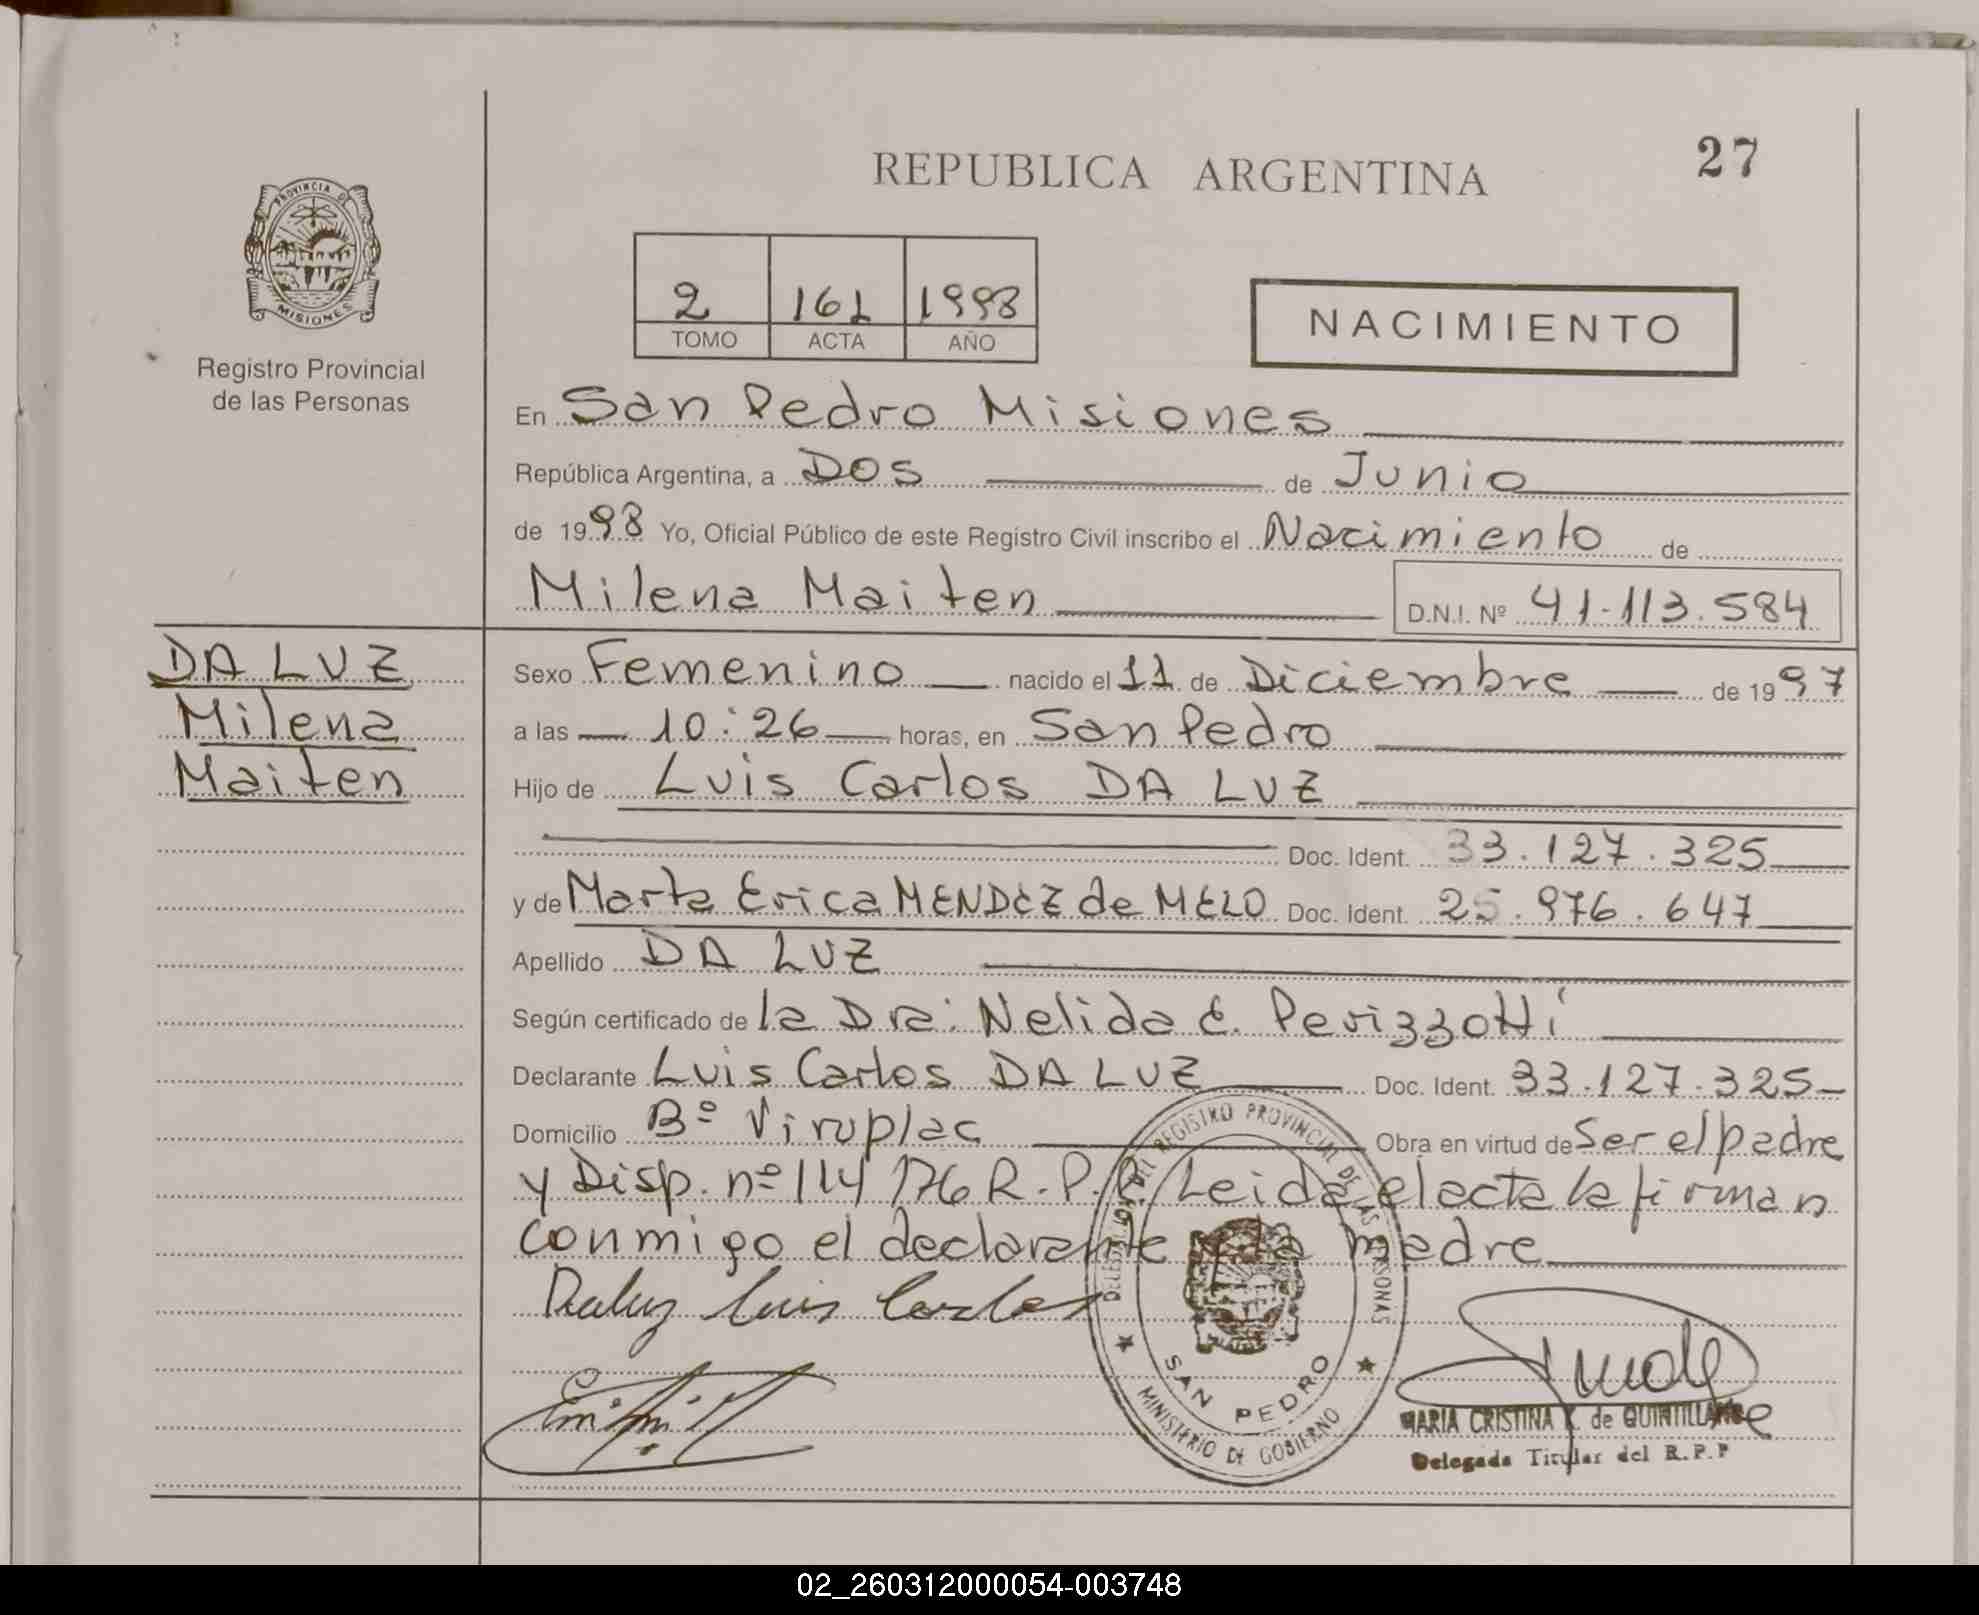 27
REPUBLICA ARGENTINA
PROVINCIA DE
MISIONES
Registro Provincial
de las Personas
2 161 1998
TOMO ACTA AÑO
NACIMIENTO
En San Pedro Misiones
República Argentina, a Dos de Junio
de 1998 Yo, Oficial Público de este Registro Civil inscribo el Nacimiento de
Milena Maiten D.N.I. Nº 41.113.584
DA LUZ
Milena
Maiten
Sexo Femenino nacido el 11 de Diciembre de 1997
a las 10:26 horas, en San Pedro
Hijo de Luis Carlos DA LUZ
Doc. Ident. 33.127.325
y de Marta Erica MENDEZ de MELO Doc. Ident. 25.976.647
Apellido DA LUZ
Según certificado de la Dra. Nelida E. Perizzotti
Declarante Luis Carlos DA LUZ Doc. Ident. 33.127.325
Domicilio Bº Viruplac Obra en virtud de Ser el padre
y Disp. nº 114/76 R.P.P. Leida el acta la firman
conmigo el declarante y la madre
Daluz Luis Carlos
REGISTRO PROVINCIAL DE LAS PERSONAS
SAN PEDRO
MINISTERIO DE GOBIERNO
MARIA CRISTINA de QUINTILLAN
Delegada Titular del R.P.P
02_260312000054-003748